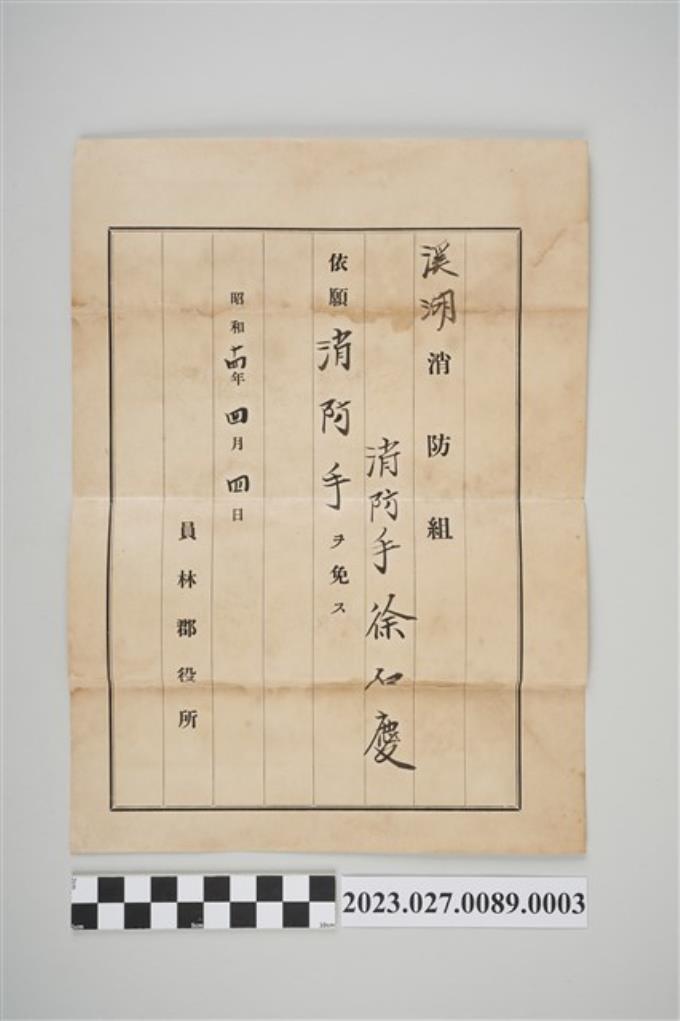 溪湖消防組
消防手徐石慶
依願消防手ヲ免ス
昭和十四年四月四日
員林郡役所
2023.027.0089.0003